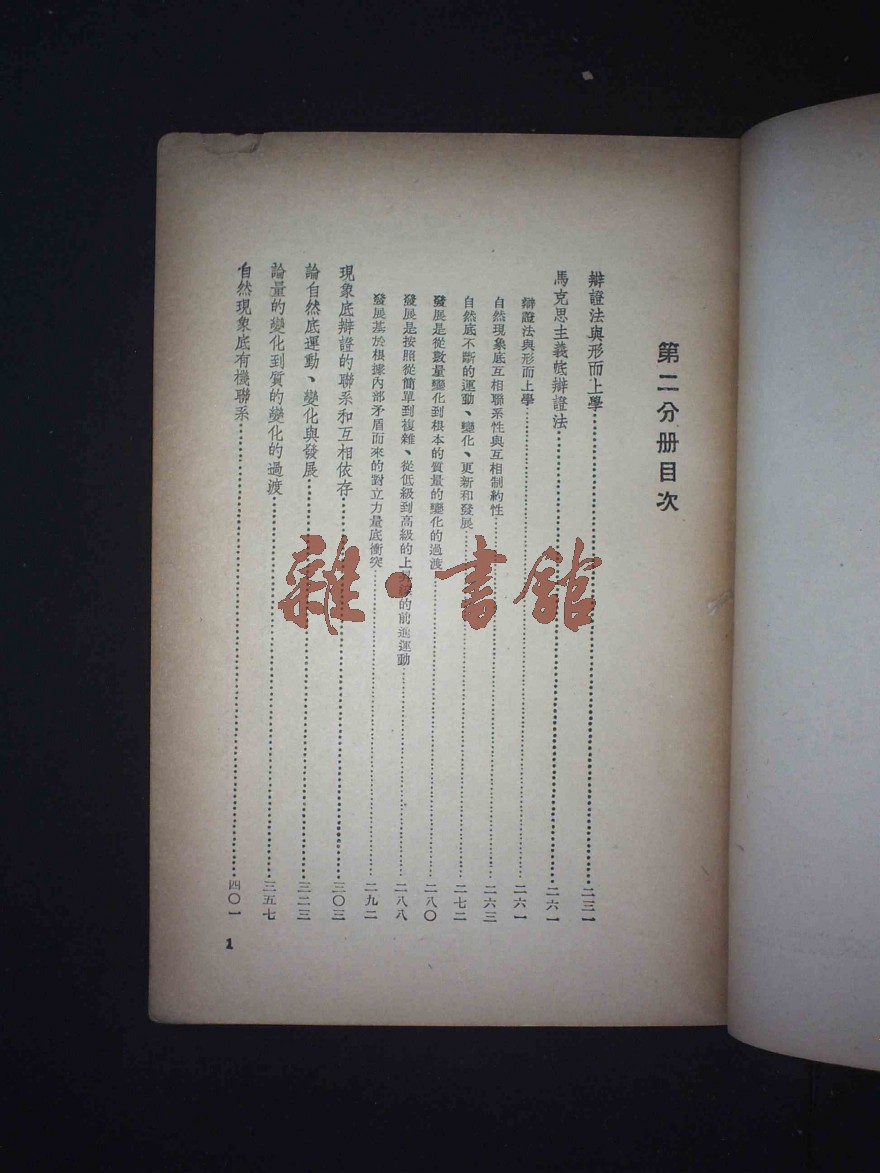 第二分册目次
辯證法與形而上學……二三一
馬克思主義底辯證法……二六一
辯證法與形而上學……二六一
自然現象底互相聯系性與互相制約性……二六三
自然底不斷的運動、變化、更新和發展……二七二
發展是從數量變化到根本的質量的變化的過渡……二八〇
發展是按照從簡單到複雜、從低級到高級的上昇線的前進運動……二八八
發展基於根據內部矛盾而來的對立力量底衝突……二九二
現象底辯證的聯系和互相依存……三〇三
論自然底運動、變化與發展……三二三
論量的變化到質的變化的過渡……三五七
自然現象底有機聯系……四〇一
1
雜·書館